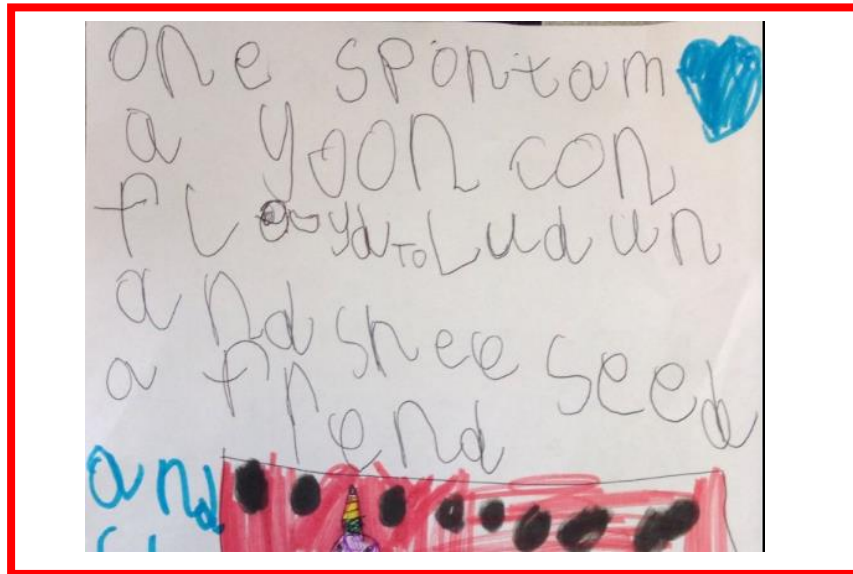 one spontam
a yoon con
fl yd To Ludun
and shee seed
a frend
and